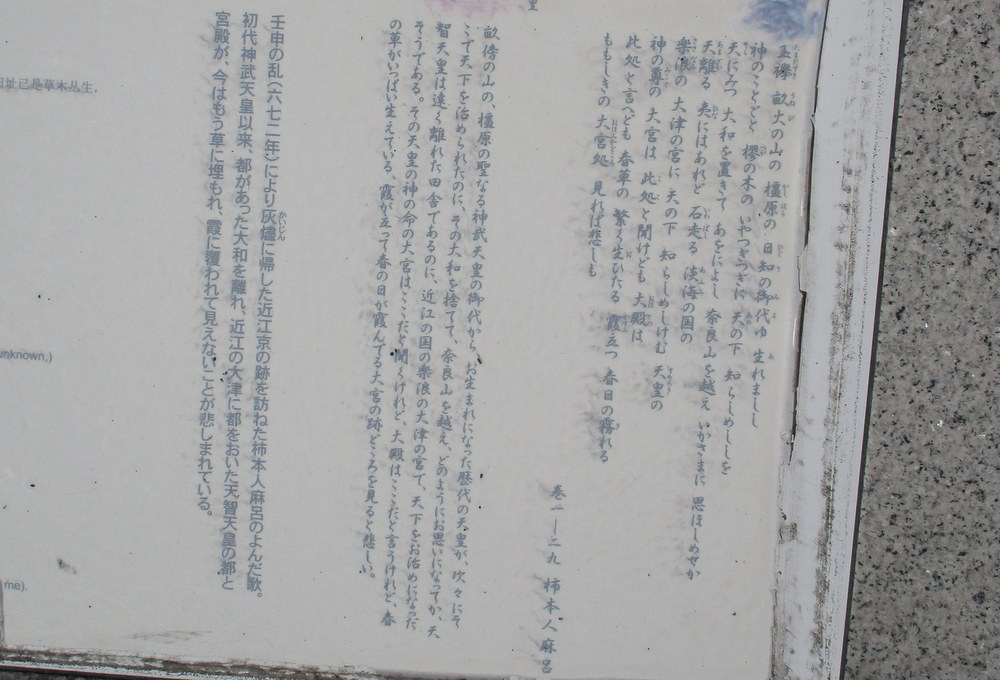 玉襷 畝火の山の 橿原の 日知の御代ゆ 生れましし
神のことごと 樛の木の いやつぎつぎに 天の下 知らしめししを
天にみつ 大和を置きて あをによし 奈良山を越え いかさまに 思ほしめせか
天離る 夷にはあれど 石走る 淡海の国の
楽浪の 大津の宮に 天の下 知らしめしけむ 天皇の
神の尊の 大宮は 此処と聞けども 大殿は
此処と言へども 春草の 繁く生ひたる 霞立つ 春日の霧れる
ももしきの 大宮処 見れば悲しも
巻一―二九 柿本人麻呂
畝傍の山の、橿原の聖なる神武天皇の御代から、お生まれになった歴代の天皇が、次々にそ
こで天下を治められたのに、その大和を捨てて、奈良山を越え、どのようにお思いになってか、天
智天皇は遠く離れた田舎であるのに、近江の国の楽浪の大津の宮で、天下をお治めになった
そうである。その天皇の神の命の大宮は、ここだと聞くけれど、大殿はここだと言うけれど、春
の草がいっぱい生えている、霞が立って春の日が霞んでる大宮の跡どころを見ると悲しい。
壬申の乱(六七二年)により灰燼に帰した近江京の跡を訪ねた柿本人麻呂のよんだ歌。
初代神武天皇以来、都があった大和を離れ、近江の大津に都をおいた天智天皇の都と
宮殿が、今はもう草に埋もれ、霞に覆われて見えないことが悲しまれている。
旧址已是草木丛生。
unknown,)
me).